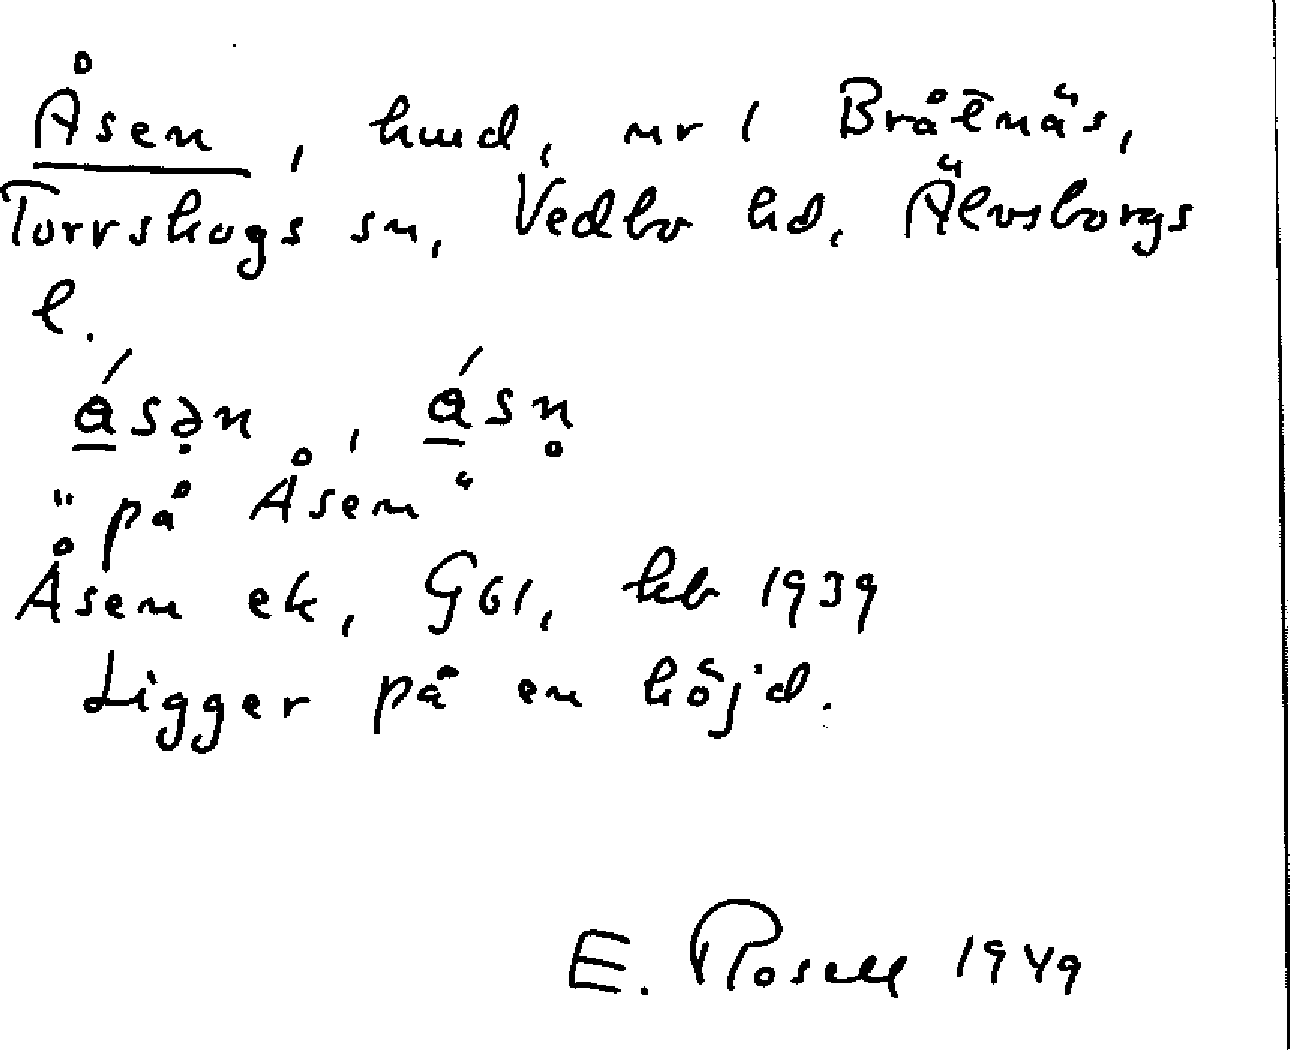 Åsen, hmd, nr 1 Bråtnäs,
Torrskogs sn, Vedbo hd, Älvsborgs
l.
ásə̣n, ásn̥
"på Åsen"
Åsen ek, G61, hb 1939
Ligger på en höjd.
E. Rosell 1949